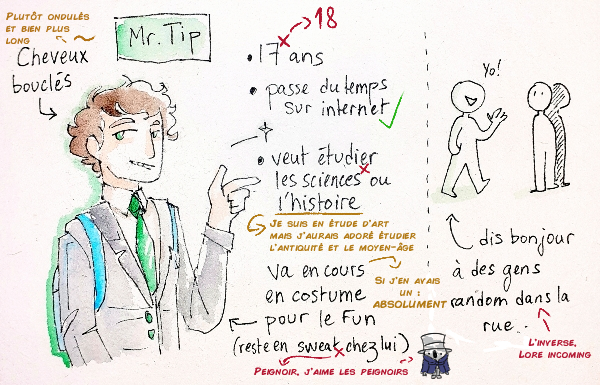 Plutôt ondulés
et bien plus
long
Cheveux
bouclés
Mr. Tip
18
• 17 ans
• passe du temps
sur internet
• veut étudier
les sciences ou
l'histoire
Je suis en étude d'art
mais j'aurais adoré étudier
l'antiquité et le moyen-âge
Va en cours
en costume
pour le fun
(reste en sweat chez lui)
Si j'en avais
un :
ABSOLUMENT
Peignoir, j'aime les peignoirs
Yo!
dis bonjour
à des gens
random dans la
rue..
L'inverse,
Lore incoming